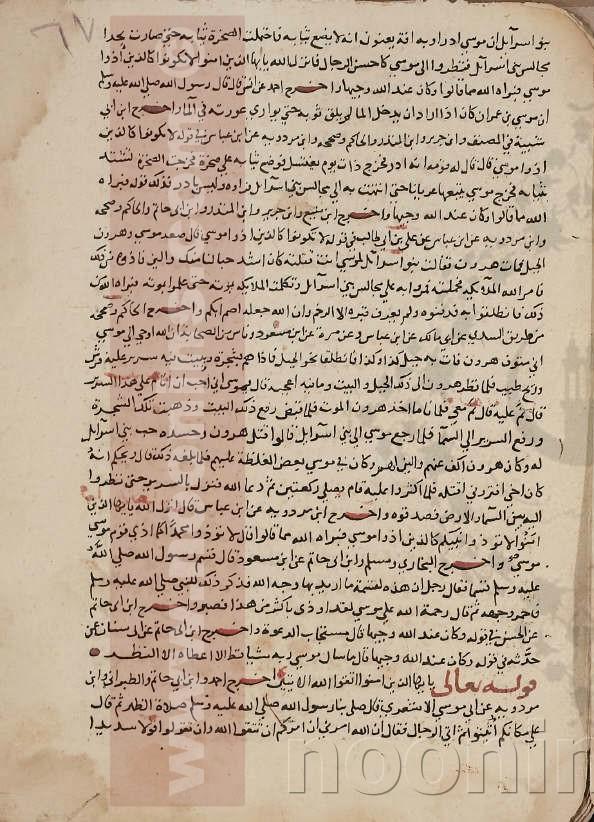 بنو اسرآيل ان موسى ادر او به افة يعنون انه لا يضع ثيابه فاحتملت الصخرة ثيابه حتى صارت بحدا
مجالس بني اسرآيل فنظروا الى موسى كاحسن الرجال فانزل الله يايها الذين امنوا لا تكونوا كالذين اذوا
موسى فبراه الله مما قالوا وكان عند الله وجيها واخرج احمد عن انس قال قال رسول الله صلى الله عليه وسلم
ان موسى بن عمران كان اذا اراد ان يدخل الما لم يلق ثوبه حتى يواري عورته في الما واخرج ابن ابي
شيبة في المصنف وابن جرير وابن المنذر والحاكم وصححه وابن مردويه عن ابن عباس في قوله لا تكونوا كالذين
اذوا موسى قال قال له قومه انه ادر فخرج ذات يوم يغتسل فوضع ثيابه على صخرة فخرجت الصخرة تشتد
بثيابه فخرج موسى يتبعها عريانا حتى انتهت به الى مجالس بني اسرآيل فراوه وليس بادر فذلك قوله فبراه
الله مما قالوا وكان عند الله وجيها واخرج ابن منيع وابن جرير وابن المنذر وابن ابي حاتم والحاكم وصححه
وابن مردويه عن ابن عباس عن علي بن ابي طالب في قوله لا تكونوا كالذين اذوا موسى قال صعد موسى وهرون
الجبل فمات هرون فقالت بنوا اسرآيل لموسى انت قتلته كان اشد حبا لنا منك والين فاذوه من ذلك
فامر الله الملايكة فحملته فمروا به على مجالس بني اسرآيل وتكلمت الملايكة بموته حتى علموا بموته فبراه الله من
ذلك فانطلقوا به فدفنوه ولم يعرف قبره الا الرخم وان الله جعله اصم ابكم واخرج الحاكم وصححه
من طريق السدي عن ابي مالك عن ابن عباس وعن مرة عن ابن مسعود وناس من الصحابة ان الله اوحى الى موسى
اني متوف هرون فات به جبل كذا وكذا فانطلقا نحو الجبل فاذا هم بشجرة وبيت فيه سرير عليه فرش
وريح طيب فلما نظر هرون الى ذلك الجبل والبيت وما فيه اعجبه قال يا موسى اني احب ان انام على هذا السرير
قال نم عليه قال نم معي فلما ناما اخذ هرون الموت فلما قبض رفع ذلك البيت وذهبت تلك الشجرة
ورفع السرير الى السما فلما رجع موسى الى بني اسرآيل قالوا قتل هرون وحسده حب بني اسرآيل
له وكان هرون اكف عنهم والين لهم وكان في موسى بعض الغلظة عليهم فلما بلغه ذلك قال ويحكم انه
كان اخي افتروني اقتله فلما اكثروا عليه قام يصلي ركعتين ثم دعا الله فنزل بالسرير حتى نظروا
اليه بين السما والارض فصدقوه واخرج ابن مردويه عن ابن عباس قال انزل الله يايها الذين
امنوا لا تكونوا كالذين اذوا موسى فبراه الله مما قالوا قال لا توذوا محمدا كما اذى قوم موسى
موسى واخرج البخاري ومسلم وابن ابي حاتم عن ابن مسعود قال قسم رسول الله صلى الله
عليه وسلم قسما فقال رجل ان هذه لقسمة ما اريد بها وجه الله فذكر ذلك للنبي صلى الله عليه وسلم
فاحمر وجهه ثم قال رحمة الله على موسى لقد اوذي باكثر من هذا فصبر واخرج ابن ابي حاتم
عن الحسن في قوله وكان عند الله وجيها قال مستجاب الدعوة واخرج ابن ابي حاتم عن سنان عن
حدثه في قوله وكان عند الله وجيها قال ما سال موسى ربه شيا قط الا اعطاه اياه الا النظر
قوله تعالى يايها الذين امنوا اتقوا الله الايتين اخرج احمد وابن ابي حاتم والطبراني وابن
مردويه عن ابي موسى الاشعري قال صلى بنا رسول الله صلى الله عليه وسلم صلاة الظهر ثم قال
على مكانكم اثبتوا ثم اتى الرجال فقال ان الله امرني ان امركم ان تتقوا الله وان تقولوا قولا سديدا